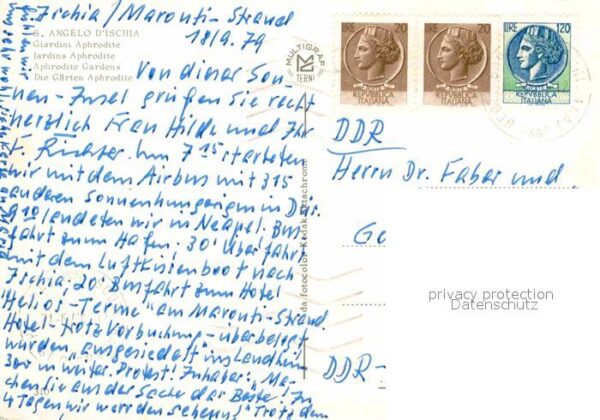 Ischia / Maronti-Strand
18/9. 79
S. ANGELO D'ISCHIA
Giardini Aphrodite
Jardins Aphrodite
Aphrodite Gardens
Die Gärten Aphrodite
Von dieser Son-
nen-Insel grüßen Sie recht
herzlich Frau Hilde und Ihr
F. Richter. Um 7 15 starteten
wir mit dem Airbus mit 315
anderen Sonnenhungrigen in Dür.
9 10 landeten wir in Neapel. Bus-
fahrt zum Hafen. 30' Überfahrt
mit dem Luftkissenboot nach
Ischia. 20' Busfahrt zum Hotel
"Helios-Terme" am Maronti-Strand.
Hotel - trotz Vorbuchung - überbelegt
wurden "ausgesiedelt" ins Landheim
300 m weiter. Protest! Inhaber: "Ma-
chen Sie aus der Sache das Beste! In
4 Tagen wir werden sehen!" Trotzdem
MULTIGRAF
TERNI
da fotocolor Kodak Ektachrome
LIRE 20
REPVBBLICA
ITALIANA
LIRE 20
REPVBBLICA
ITALIANA
LIRE 120
REPVBBLICA
ITALIANA
DDR
Herrn Dr. Faber und
Ge
DDR-
privacy protection
Datenschutz